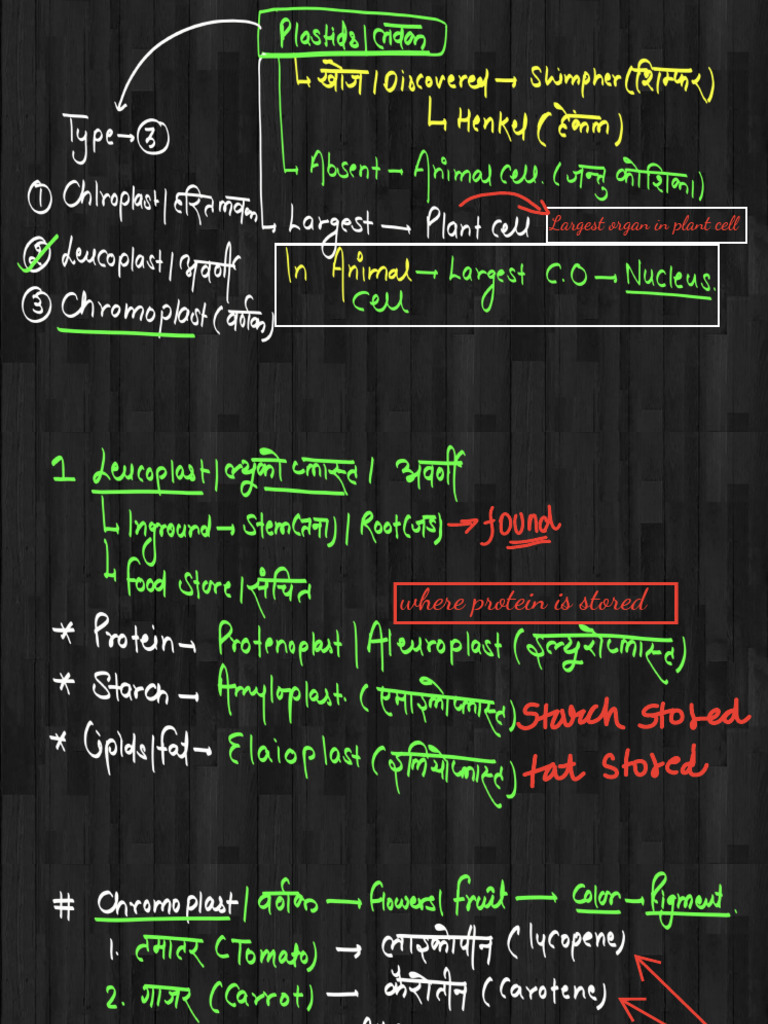 Plastids|लवक
खोज / Discovered → Shimpher (शिम्फर)
Henkel (हेंकल)
Type → ③
Absent → Animal cell. (जन्तु कोशिका)
① Chlroplast | हरित लवक
Largest → Plant cell
Largest organ in plant cell
② Leucoplast / अवर्णी
In Animal cell → Largest C.O → Nucleus.
③ Chromoplast (वर्णक)
1 Leucoplast | ल्यूको प्लास्ट | अवर्णी
Inground → Stem(तना) | Root(जड) → found
Food Store | संचित
where protein is stored
* Protein → Protenoplast | Aleuroplast (इल्यूरोप्लास्ट)
* Starch → Amyloplast. (एमाइलोप्लास्ट) Starch stored
* Lipids/fat → Elaioplast (इलियोप्लास्ट) fat stored
# Chromoplast | वर्णक → flowers | fruit → Color → Pigment.
1. टमाटर (Tomato) → लाइकोपीन (lycopene)
2. गाजर (Carrot) — कैरोटीन (Carotene)